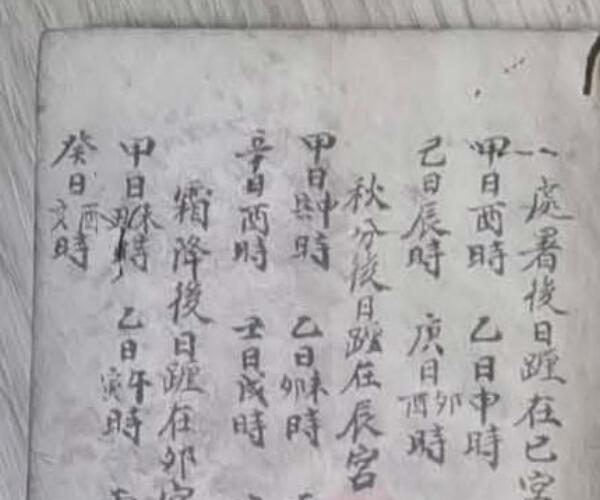 一處署後日躔在巳宮
甲日酉時 乙日申時
己日辰時 庚日卯酉時
秋分後日躔在辰宮
甲日申時 乙日未卯時
辛日酉時 壬日戌時
霜降後日躔在卯宮
甲日未時 乙日午寅時
癸日酉亥時